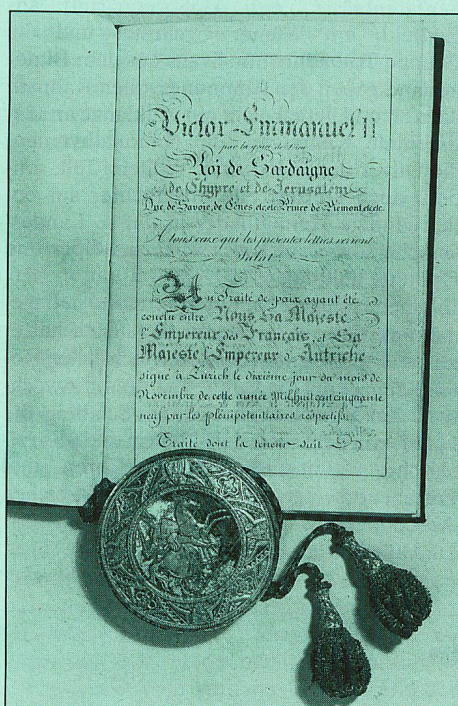 Victor Emmanuel II
par la grace de Dieu
Roi de Sardaigne
de Chypre et de Jerusalem
Duc de Savoie, de Gênes etc. etc. Prince de Piémont etc. etc.
A tous ceux qui les presentes lettres verront
Salut
Un Traité de paix ayant été
conclu entre Nous, Sa Majesté
l'Empereur des Français, et Sa
Majesté l'Empereur d'Autriche
signé à Zurich le dixième jour du mois de
Novembre de cette année Mil huit cent cinquante
neuf par les plénipotentiaires respectifs.
Traité dont la teneur suit